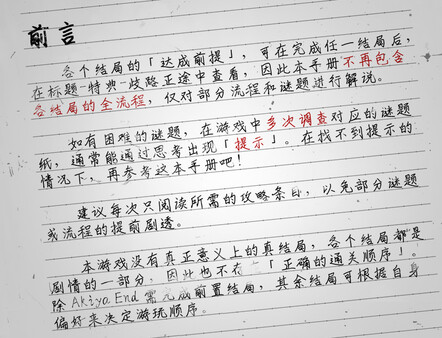 前言
各个结局的「达成前提」，可在完成任一结局后，
在标题-特典-歧路正途中查看，因此本手册不再包含
各结局的全流程，仅对部分流程和谜题进行解说。
如有困难的谜题，在游戏中多次调查对应的谜题
纸，通常能通过思考出现「提示」。在找不到提示的
情况下，再参考这本手册吧！
建议每次只阅读所需的攻略条目，以免部分谜题
或流程的提前剧透。
本游戏没有真正意义上的真结局，各个结局都是
剧情的一部分，因此也不存「正确的通关顺序」。
除Akiya End需完成前置结局，其余结局可根据自身
偏好来决定游玩顺序。